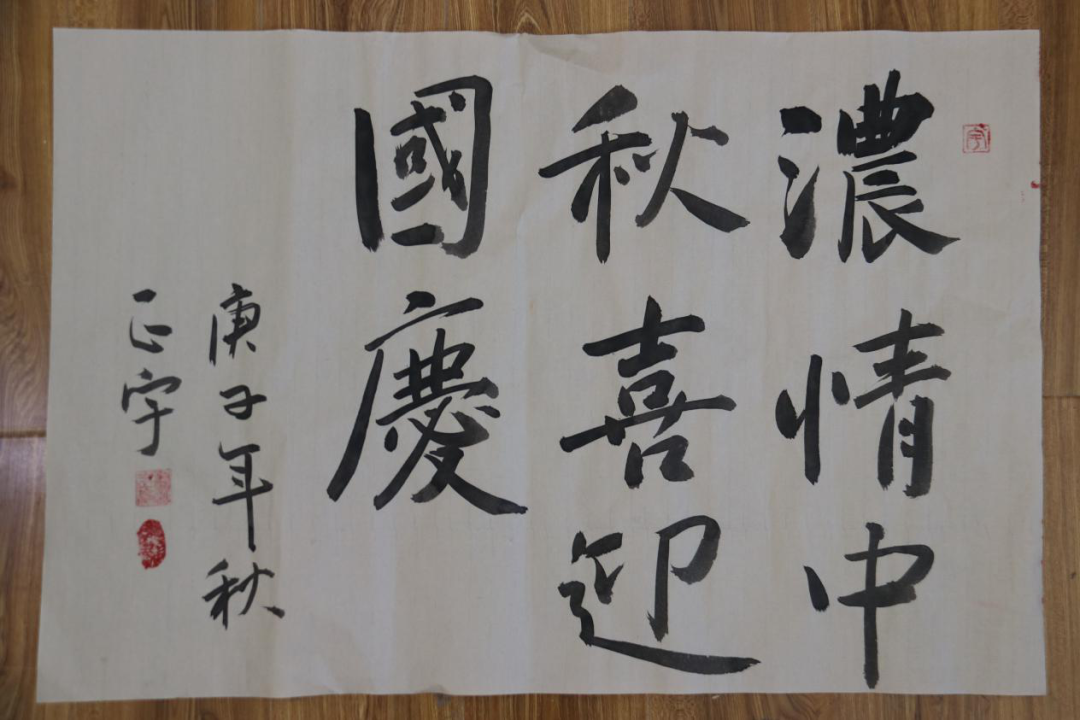 濃情中
秋喜迎
國慶
庚子年秋
正宇